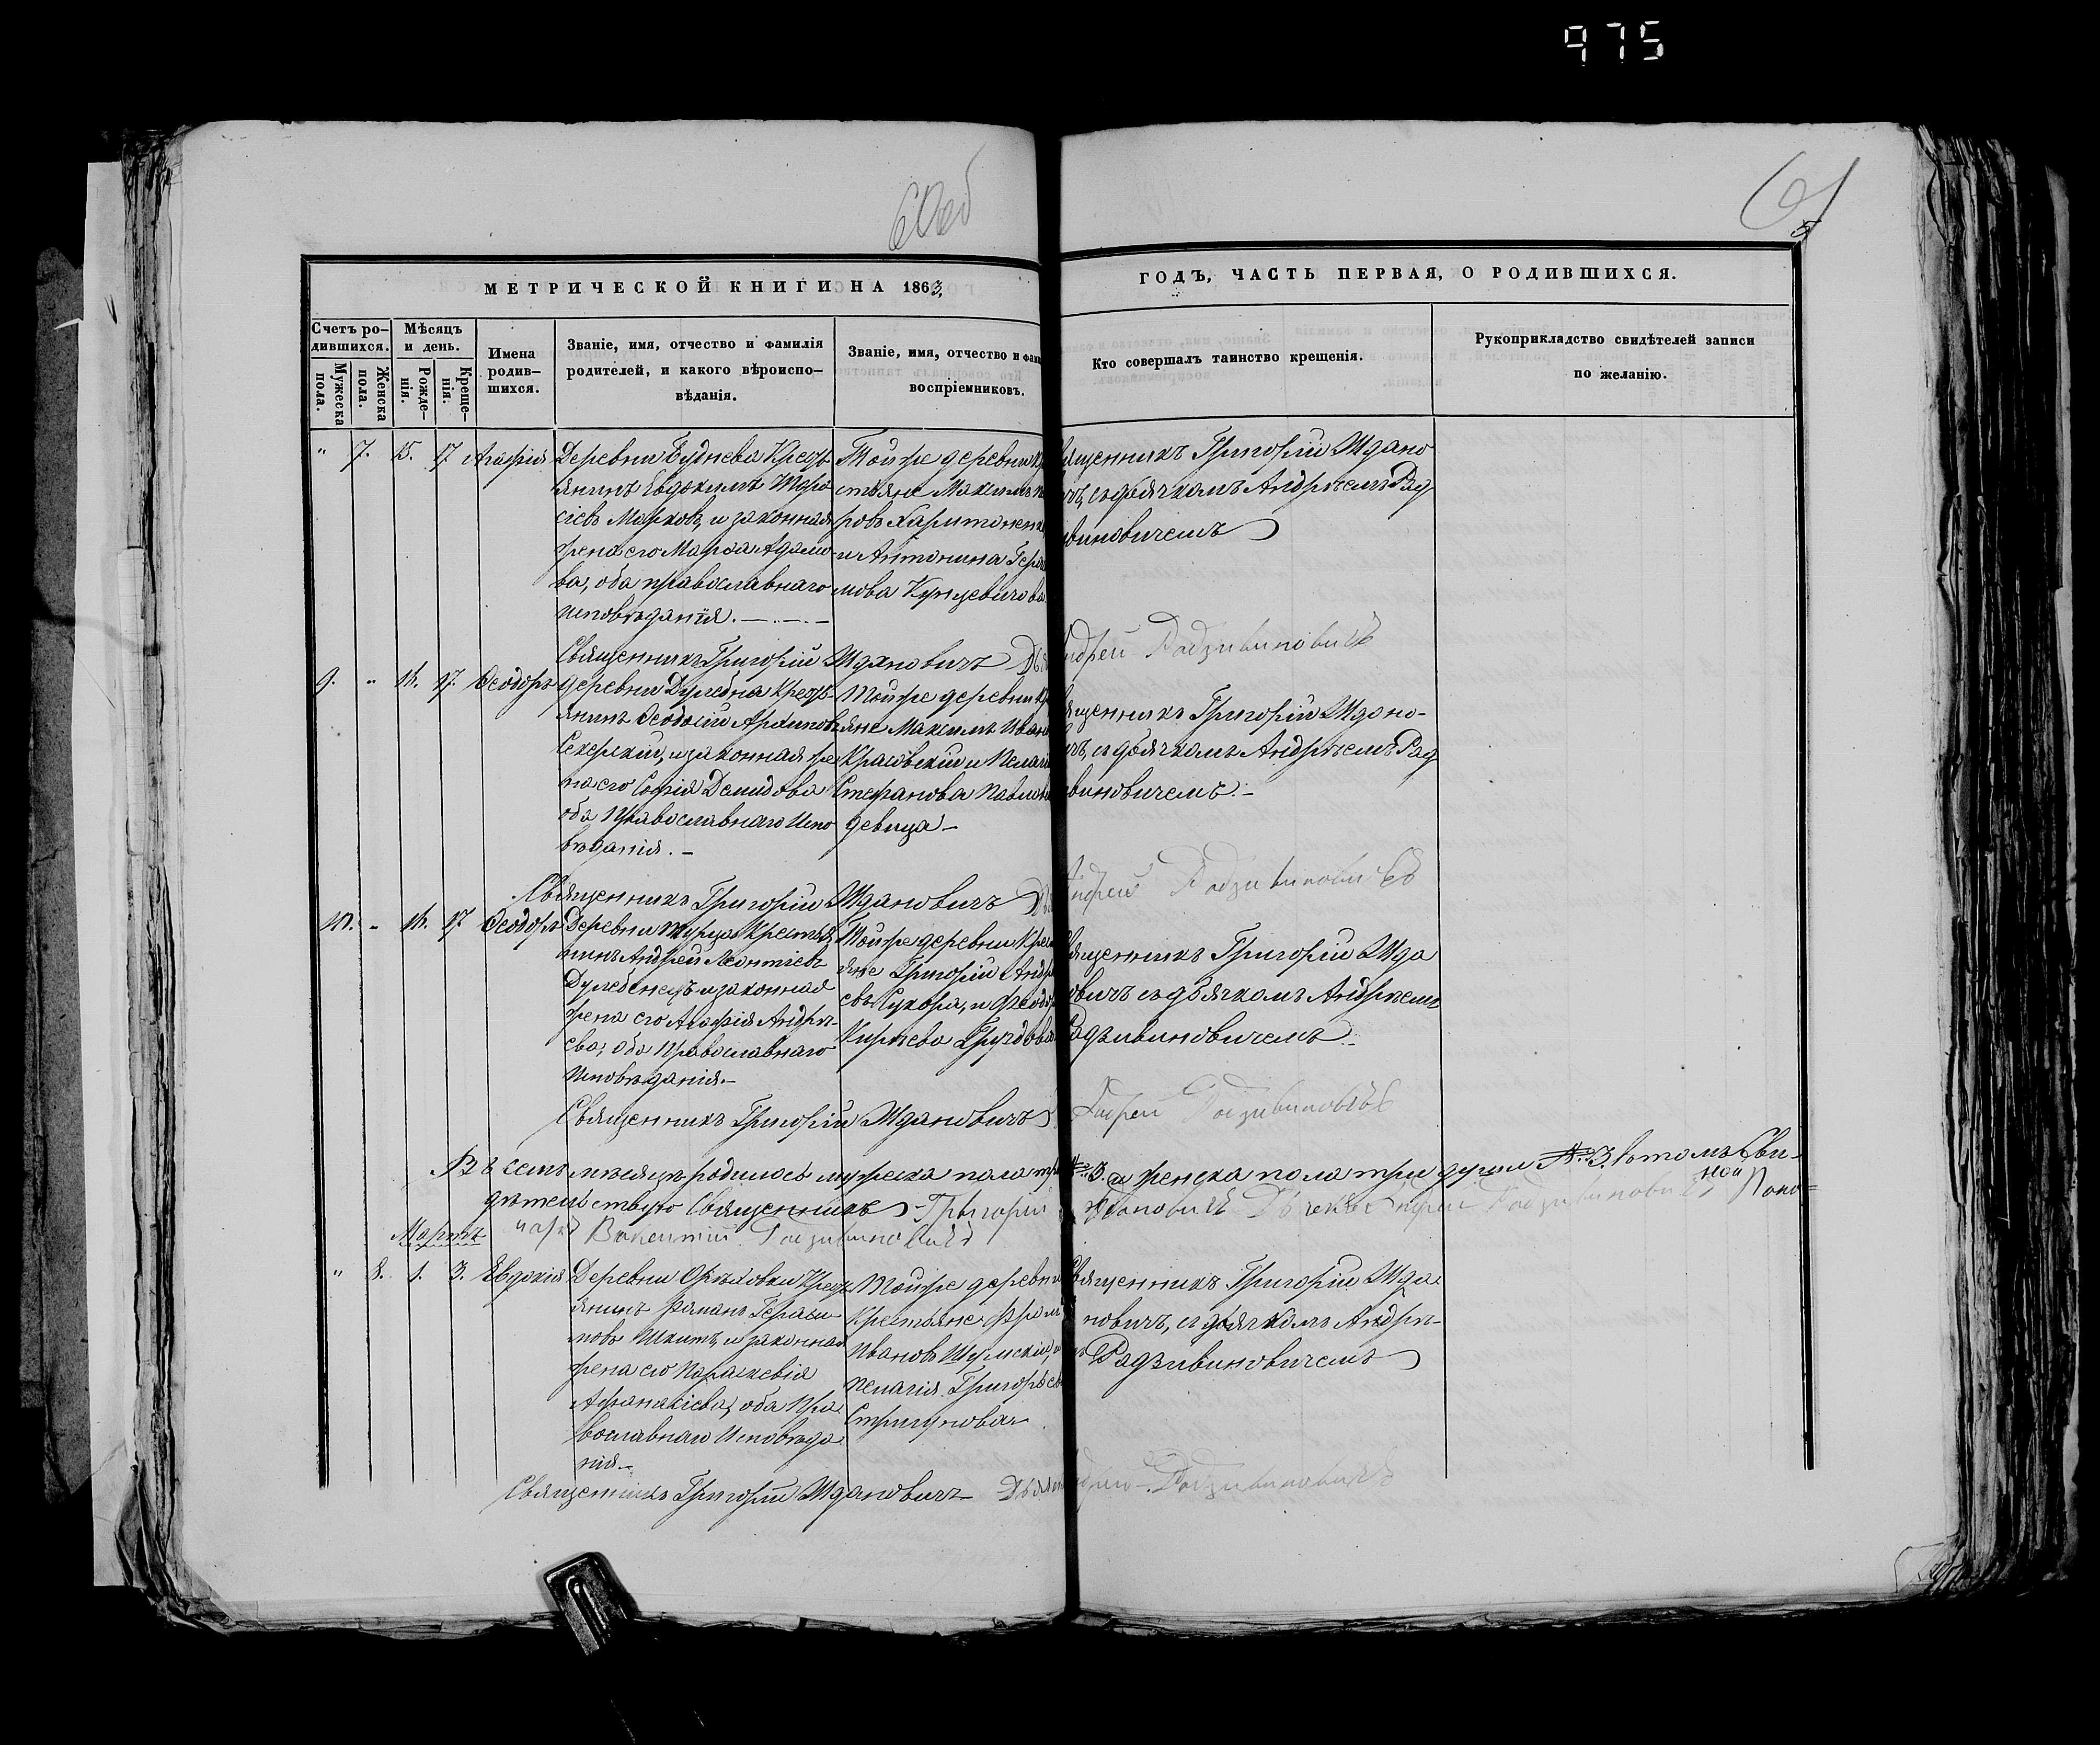 975
60об
61
5
МЕТРИЧЕСКОЙ КНИГИ НА 1863.
ГОДЪ, ЧАСТЬ ПЕРВАЯ, О РОДИВШИХСЯ.
Счетъ ро-
дившихся.
Мужеска
пола.
Женска
пола.
Мѣсяцъ
и день.
Рожде-
нія.
Креще-
нія.
Имена
родив-
шихся.
Званіе, имя, отчество и фамилія
родителей, и какого вѣроиспо-
вѣданія.
Званіе, имя, отчество и фами
воспріемниковъ.
Кто совершалъ таинство крещенія.
Рукоприкладство свидѣтелей записи
по желанію.
" 7. 15. 17 Агафія
Деревни Буднева Крест
янинъ Евдокимъ
Марковъ, и законная
жена его Марѳа Адамо
ва, оба православнаго
исповѣданія.
Той же деревни кр
стьяне Максимъ
ровъ Харитонен
и Антонина Гера
мова Кунцевичова
вященникъ Григорій Ждано
чъ, съ дьячкомъ Андреемъ Рад
виновичемъ
Священникъ Григорій Ждановичъ Дья
ндрей Радзивиновичъ
9. " 16. 17. Ѳеодоръ
Деревни Дулебна Крест
янинъ Ѳеодосій Архипов
и законная же
на его Софія Демидова
оба Православнаго Испо
вѣданія.
Той же деревни кр
яне Максимъ Иван
Красовскій и Пелагі
Стефанова Павлов
девица
ященникъ Григорій Ждано-
чъ, съ дьячкомъ Андреемъ Рад
виновичемъ.
Священникъ Григорій Ждановичъ Дь
Андрей Радзивиновичъ
10. " 16. 17 Ѳеодоръ
Деревни Крестья
нинъ Андрей Леонтіевъ
Дулебенецъ и законная
жена его Агафія Андре-
ева, оба Православнаго
Исповѣданія.
Той же деревни Кре
яне Григорій Андр
евъ Сикора, и Ѳеодо
Кирѣева Груздова
вященникъ Григорій Жда
овичъ съ дьячкомъ Андреемъ
Радзивиновичемъ
Священникъ Григорій Ждановичъ
Андрей Радзивиновичъ
Въ семъ мѣсяцѣ родилось мужеска пола три
№ 3. и женска пола три души № 3. въ томъ Сви-
дѣтельствую Священникъ Григорій
Ждановичъ Дьячекъ Андрей Радзивиновичъ, Поно-
марь Викентій Радзивиновичъ
Мартъ
" 8. 1. 3. Евдокія
Деревни Орѣховки Крест
янинъ Романъ Гераси
мовъ Шкитъ, и законная
жена его Параскевія
Афанасіева, оба Пра
вославнаго Исповѣда
нія.
Той же деревни
Крестьяне
Ивановъ Шумскій, и
Пелагія Григорьев
Стригунова
вященникъ Григорій Жда
новичъ, съ дьячкомъ Андре-
Радзивиновичемъ
Священникъ Григорій Ждановичъ Дьяч
ндрей Радзивиновичъ